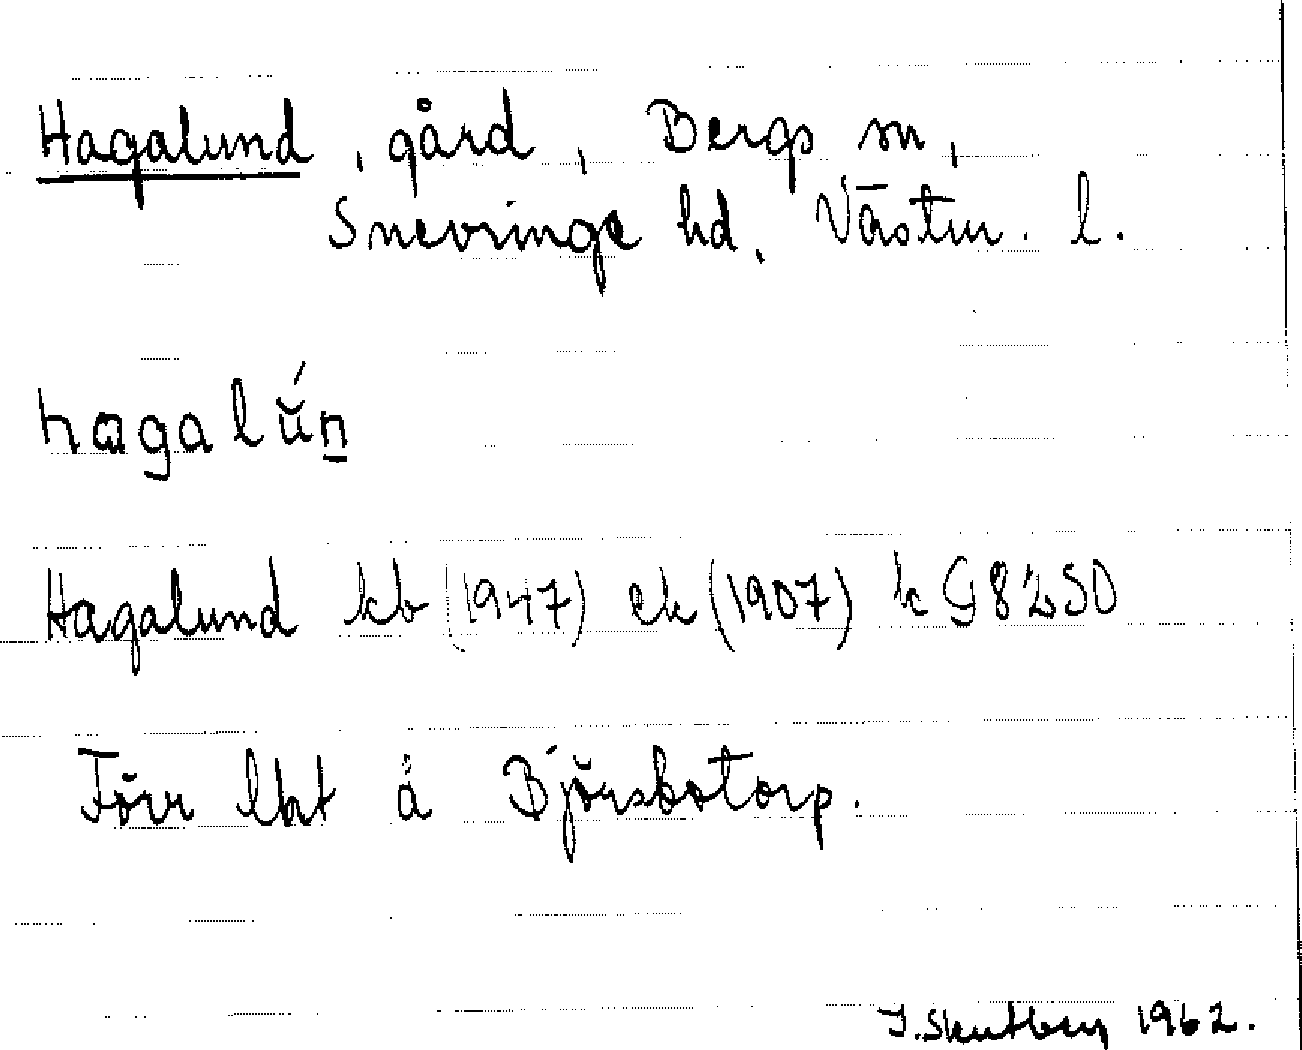 Hagalund, gård, Bergs sn,
Snevringe hd, Västm. l.
hagalŭ́n
Hagalund kb (1947) ek (1907) k G8250
Förr lht å Björsbotorp.
J. Skutberg 1962.